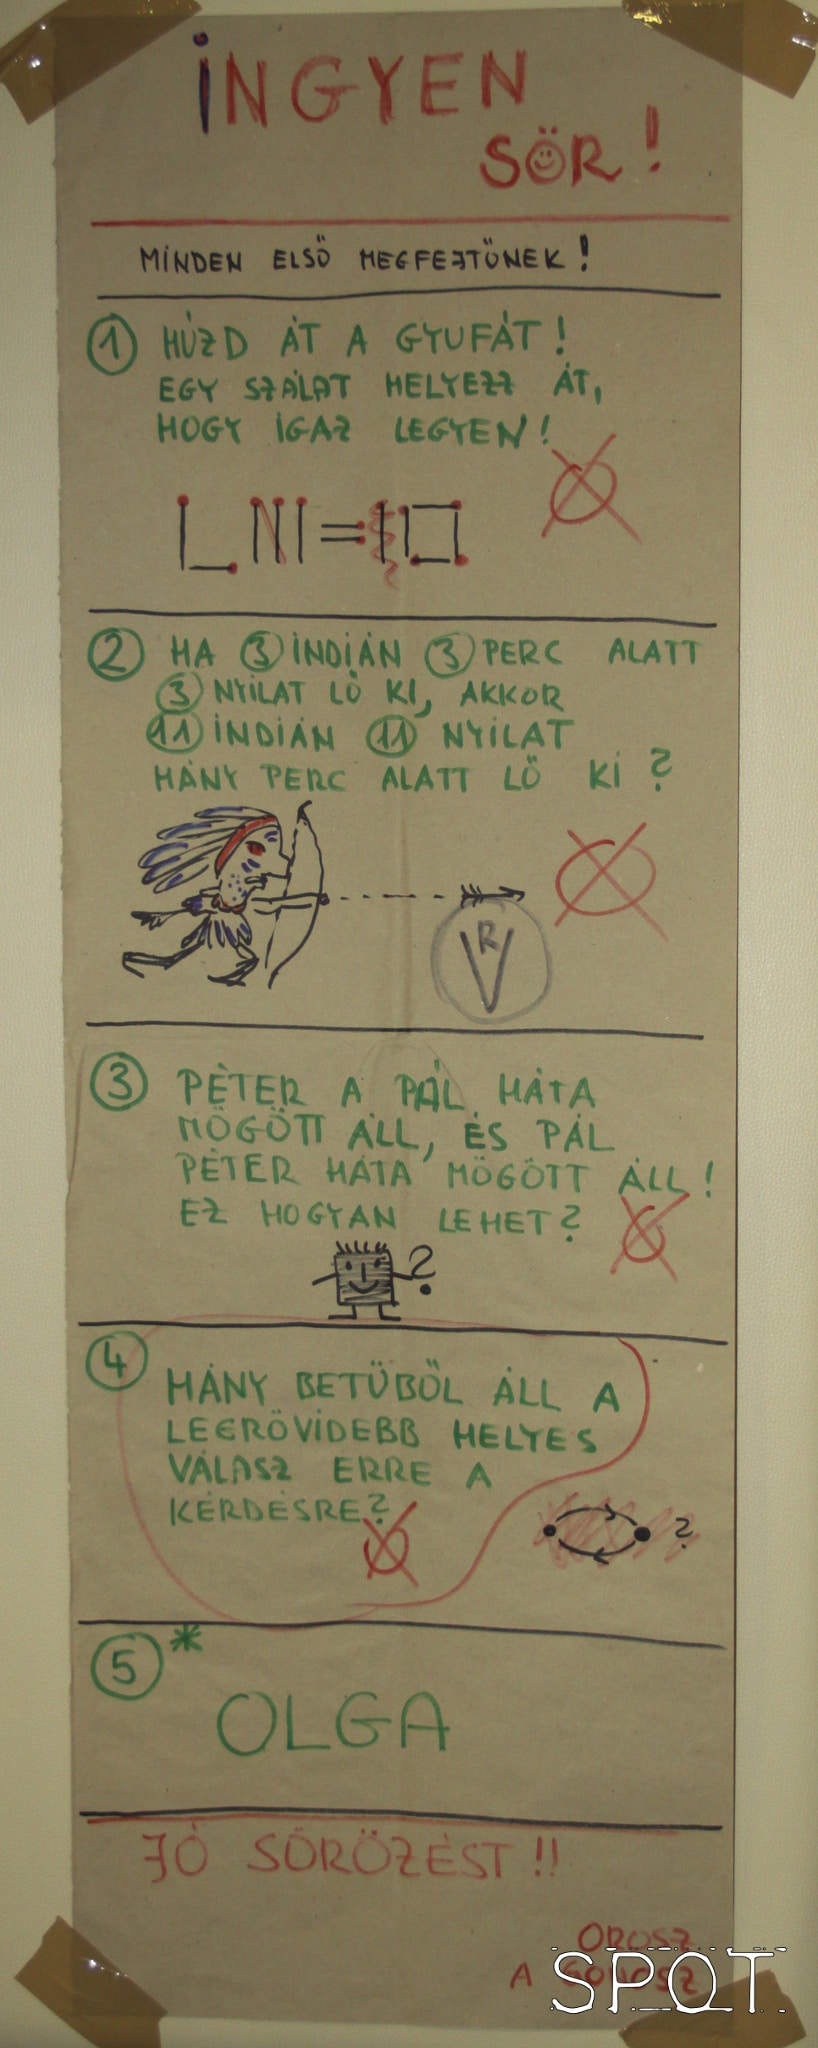 İNGYEN
SÖR!
MİNDEN ELSŐ MEGFEJTŐNEK!
1 HÚZD ÁT A GYUFÁT!
EGY SZÁLAT HELYEZZ ÁT,
HOGY İGAZ LEGYEN!
2 HA 3 İNDİÁN 3 PERC ALATT
3 NYİLAT LŐ Kİ, AKKOR
11 İNDİÁN 11 NYİLAT
HÁNY PERC ALATT LŐ Kİ?
R
V
3 PÉTER A PÁL HÁTA
MÖGÖTT ÁLL, ÉS PÁL
PÉTER HÁTA MÖGÖTT ÁLL!
EZ HOGYAN LEHET?
?
4 HÁNY BETŰBŐL ÁLL A
LEGRÖVİDEBB HELYES
VÁLASZ ERRE A
KÉRDÉSRE?
?
5*
OLGA
JÓ SÖRÖZÉST!!
OROSZ
A GONOSZ
SPOT